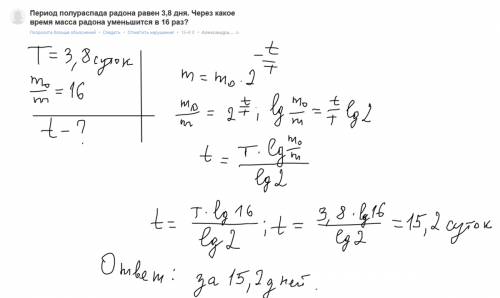 Период полураспада радона равен 3,8 дня. Через какое
время масса радона уменьшится в 16 раз?
Попросить больше объяснений • Следить • Отметить нарушение
T = 3,8 суток
m₀/m = 16
t - ?
m = m₀ · 2^(-t/T)
m₀/m = 2^(t/T); lg m₀/m = t/T lg2
t = T · lg m₀/m / lg2
t = T · lg16 / lg2; t = 3,8 · lg16 / lg2 = 15,2 суток
Ответ: за 15,2 дней.